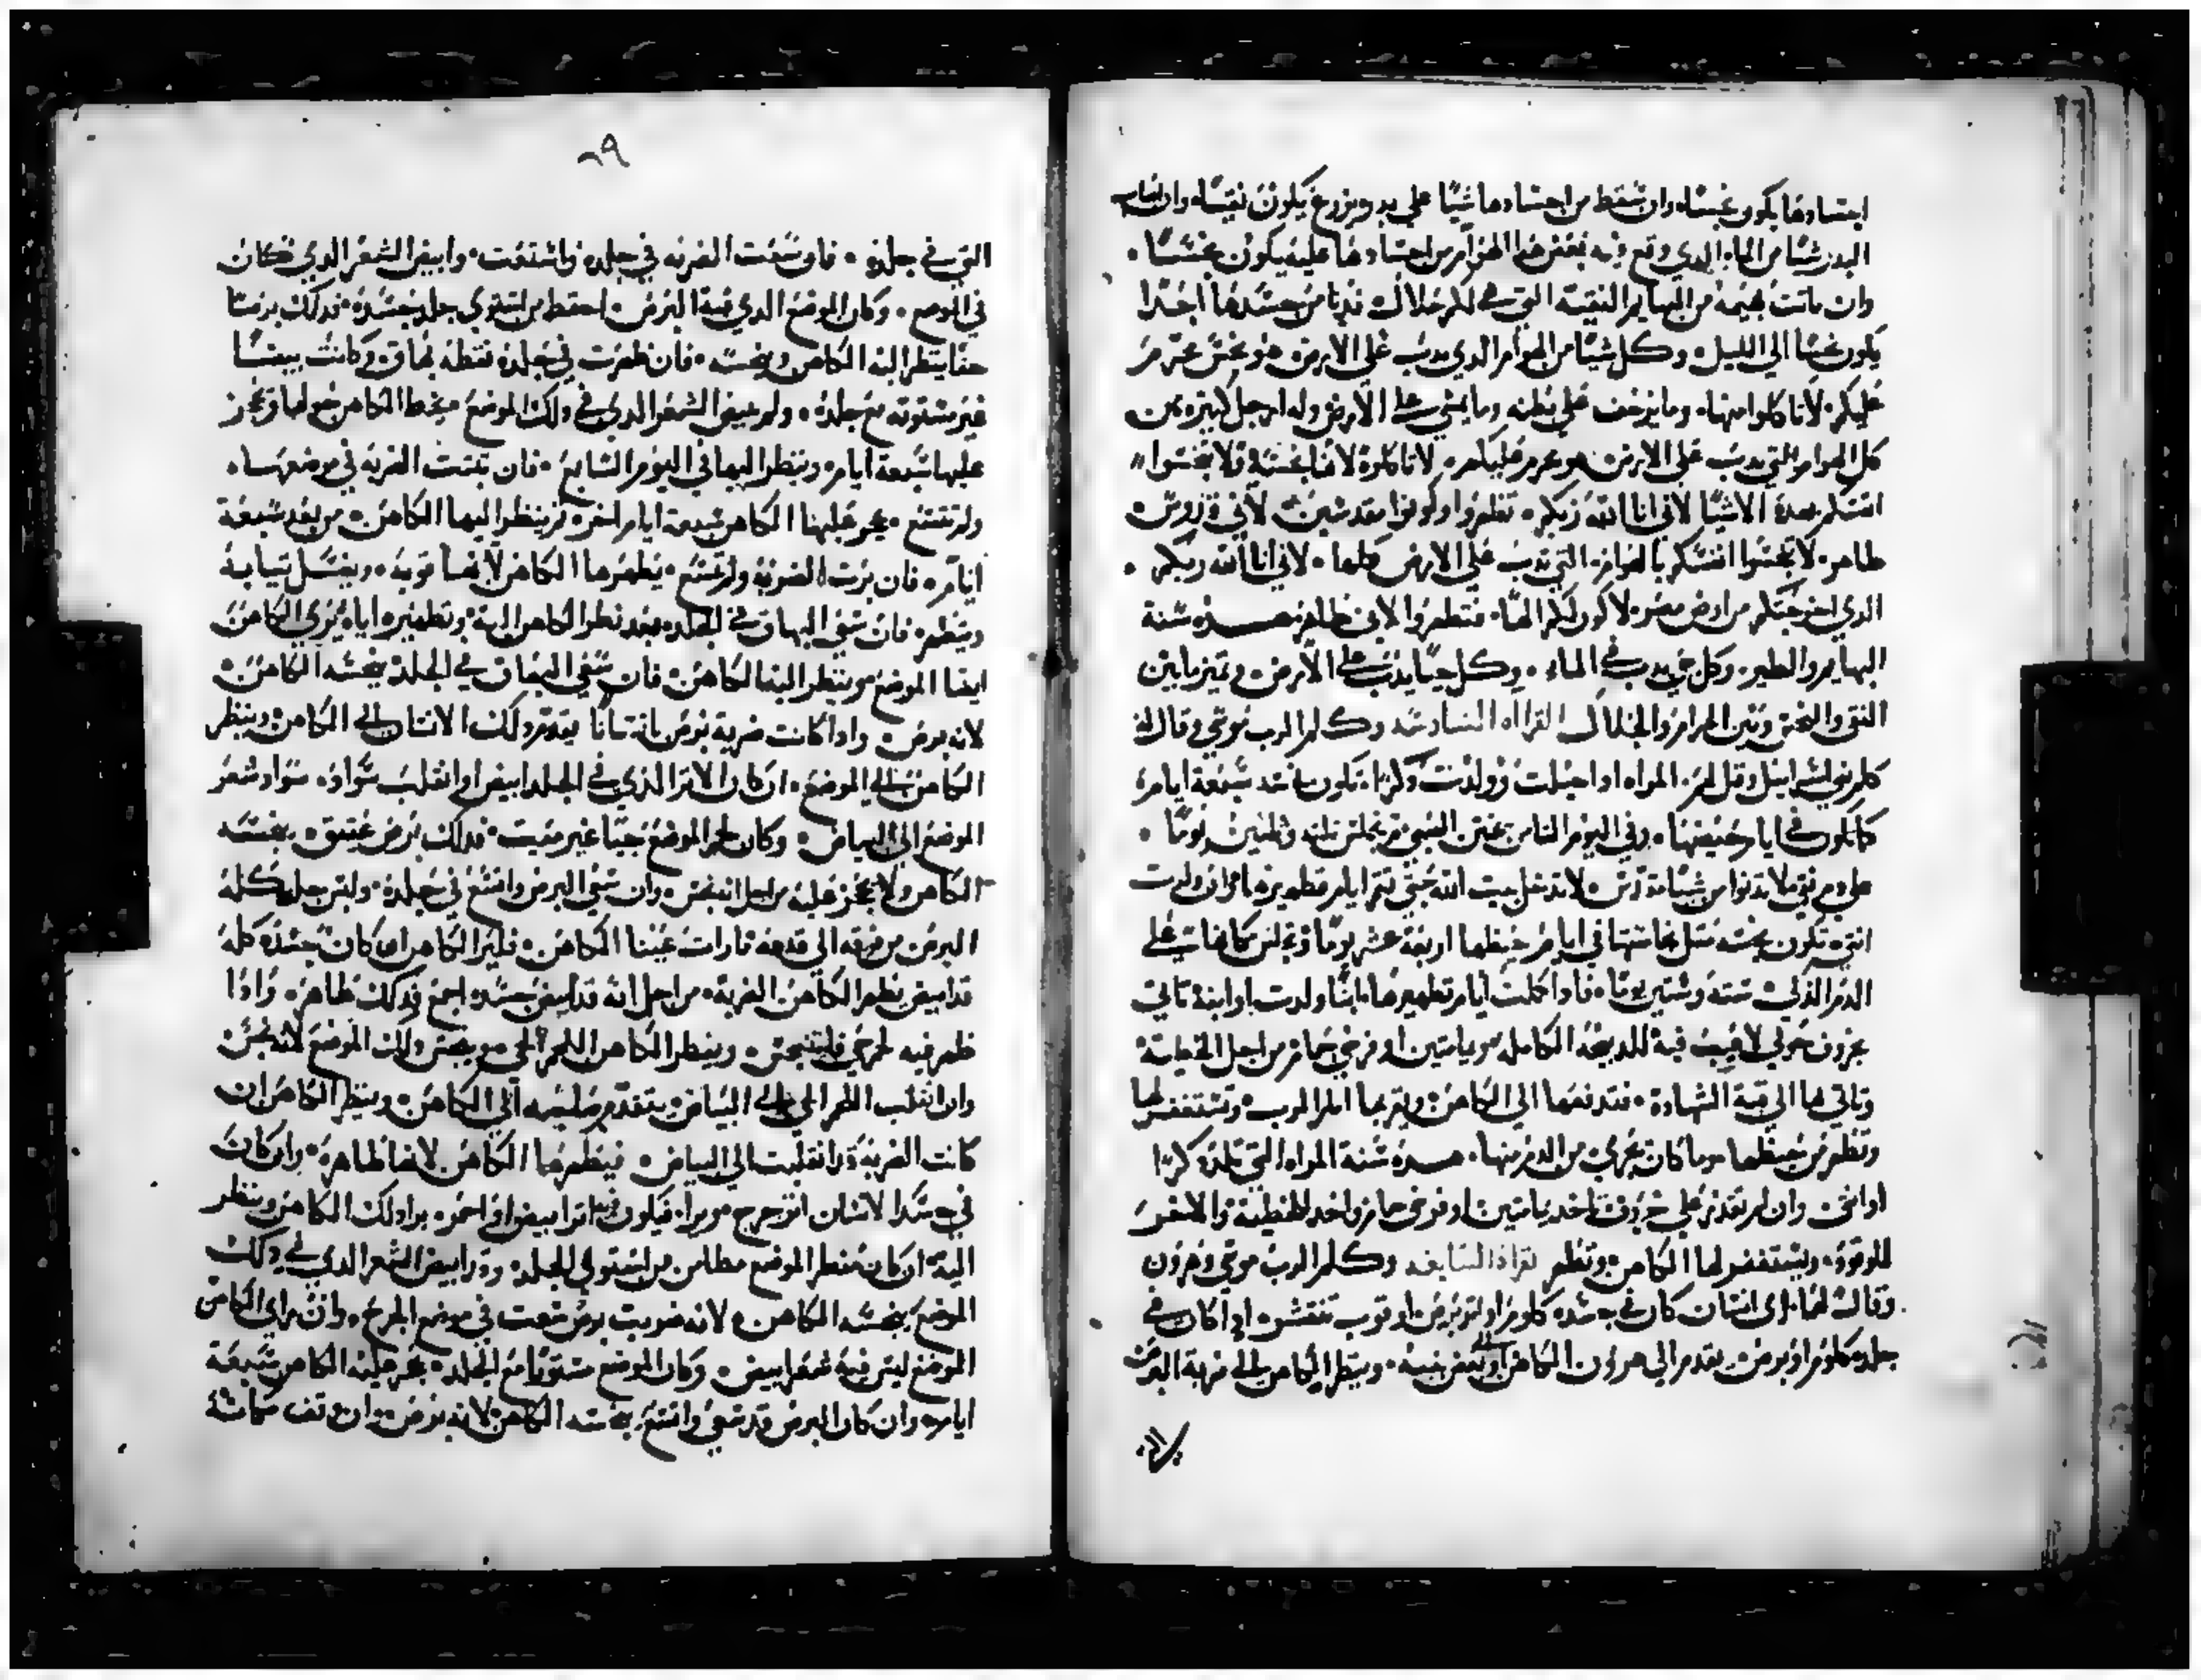 اجسادها يكون نجسًا وان سقط من اجسادها شيًا علي بدر ويزرع يكون نقيًا وان اصاب
البدر شيًا من الماء الدي وقع فيه بعض هدا الهوام من اجسادها عليه يكون نجسًا
وان ماتت بهيمة من البهايم النقية التي هي لكم حلال فدنا من جسدها احدًا
يكون نجسًا الي الليل وكل شيًا من الهوام الدي يدب علي الارض هو نجس محرم
عليكم لا تاكلوا منها وما يزحف علي بطنه وما يمشي علي الارض وله ارجل كثيره من
كل الهوام التي يدب علي الارض هو محرم عليكم لا تاكلوه لانها نجسة ولا تنجسوا
انفسكم بهده الاشيا لاني انا الله ربكم تطهروا وكونوا مقدسين لاني قدوس
طاهر لا تنجسوا انفسكم بالهوام التي تدب علي الارض كلها لاني انا الله ربكم
الدي اخرجتكم من ارض مصر لاكون لكم الهًا فتطهروا لاني طاهر هده سنة
البهايم والطير وكل حي يدب في الماء وكل حيًا يدب علي الارض وتميز ما بين
النقي والنجس وبين الحرام والحلال القراه السادسه وكلم الرب موسي وقال له
كلم بنو اسرايل وقل لهم المراه ادا حبلت وولدت دكرًا تكون نجسه سبعة ايام
كما تكون في ايام حيضها وفي اليوم الثامن يختن الصبي وتجلس تلته وثلثين يومًا
علي دم نقي ولا تدنوا من شيئًا مقدس لا تدخل بيت الله حتي تتم ايام تطهيرها وان ولدت
انثي تكون نجسه مثل نجاستها في ايام حيضها اربعة عشر يومًا وتجلس كما هات علي
الدم الزكي سته وستين يومًا فادا كملت ايام تطهيرها ابنًا ولدت او ابنة تاتي
بخروف حولي لا عيب فيه للدبيحة الكامله ويمامتين او فرخي حمام من اجل الخطية
وتاتي بها الي قبة الشهادة فتدفعها الي الكاهن ويقربها امام الرب وتستغفر لها
وتطهر من حيضها وما كان يجري من الدم منها هده سنة المراه التي تلد دكرًا
او انثي وان لم تقدر علي خروف تاخد يمامتين او فرخي حمام واحد للخطية والاخر
للوقود ويستغفر لها الكاهن وتطهر قراة السابعه وكلم الرب موسي وهرون
وقال لهما اي انسان كان في جسده كلوم او لون برص او قوب تنقش ادا كان في
جلده كلوم او برص يقدم الي هرون الكاهن او الي بعض بنيه وينظر الكاهن الي ضربة البرص
التي
٦٩
التي في جلده فان سعت الضربه في جلده واشتغت وابيض الشعر الدي كان
في الموضع وكان الموضع الدي فيه البرص احفط من استوي جلد جسده فدلك برصًا
حقًا ينظر اليه الكاهن وينجسه فان ظهرت في جلده نقطه بهاق وكانت بيضًا
غير مستوته مع جلده ولم يبيض الشعر الدي في دلك الموضع فيخط الكاهن حولها ويحرز
عليها سبعة ايام وينظر اليها في اليوم السابع فان تبتت الضربه في موضعها
ولم تتسع يحجر عليها الكاهن سبعة ايام اخر ثم ينظر اليها الكاهن من بعد سبعة
ايام فان برت الضربه ولم تتسع يطهرها الكاهن لانها قوبه ويغسل تيابه
ويتطهر فان سعي البهاق في الجلد بعد نظر الكاهن اليه وتطهيره اياه يري الكاهن
ايضا الموضع وينظر اليها الكاهن فان سعي البهاق في الجلد ينجسه الكاهن
لانه برص وادا كانت ضربة برص بانسانًا يقدم دلك الانسان الي الكاهن وينظر
الكاهن الي الموضع ان كان الاتر الدي في الجلد ابيض او انقلب سواد سواد شعر
الموضع الي البياض وكان لحم الموضع حيًا غير ميت فدلك برص عتيق ينجسه
الكاهن ولا يحجز عليه من اجل انه نجس وان سعي البرص واتسع في جلده ولبس جلده كله
البرص من فرقه الي قدمه ما رات عينا الكاهن فلير الكاهن ان كان جسده كله
قد ابيض يطهر الكاهن الضربة من اجل انه قد ابيض جسده اجمع فدلك طاهر وادا
ظهر فيه لحم حي فلينجس وينظر الكاهن اللحم الحي وينجس دلك الموضع لانه نجس
وان انقلب اللحم الحي الي البياض يتقدم صاحبه الي الكاهن وينظر الكاهن ان
كانت الضربة قد انقلبت الي البياض فيطهرها الكاهن لانها طاهرة وان كان
في جسد الانسان اتر جرح مويرا فيكون فيه اترا ابيض او احمر يرا دلك الكاهن وينظر
اليه ان كان منظر الموضع مطامن من استوي الجلد وقد ابيض الشعر الدي في دلك
الموضع ينجسه الكاهن لانه ضربت برص سعت في موضع الجرح وان راي الكاهن
الموضع ليس فيه شعر ابيض وكان الموضع مستويًا مع الجلد يحجر عليه الكاهن سبعة
ايام وان كان البرص قد سعي واتسع ينجسه الكاهن لانه برص وان وقف مكانه